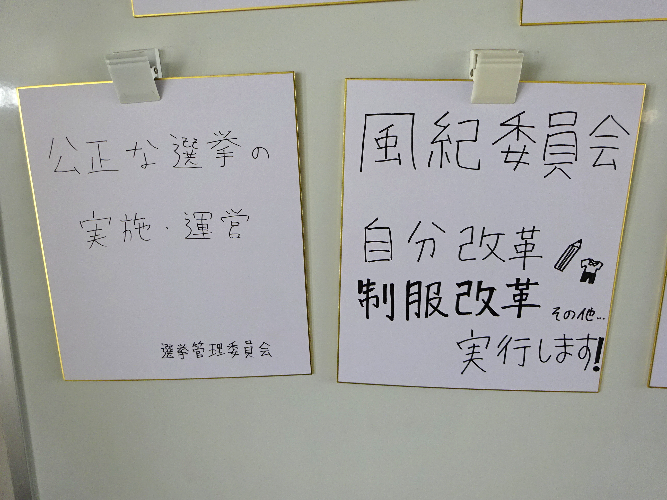 公正な選挙の
実施・運営
選挙管理委員会
風紀委員会
自分改革
制服改革 その他...
実行します!